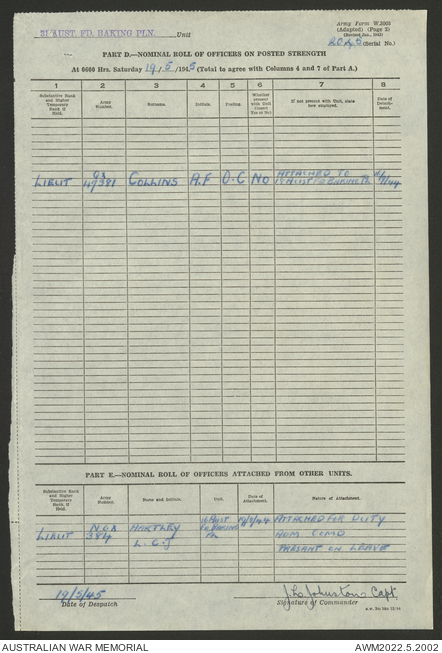 Army Form W.3005
(Adapted) (Page 2)
(Revised Jan., 1943)
31 AUST. FD. BAKING PLN. Unit
2045 (Serial No.)
PART D.—NOMINAL ROLL OF OFFICERS ON POSTED STRENGTH
At 0600 Hrs. Saturday 19/5/1945 (Total to agree with Columns 4 and 7 of Part A.)
1 2 3 4 5 6 7 8
Substantive Rank and Higher Temporary Rank if Held.
Army Number.
Surname.
Initials.
Posting.
Whether present with Unit (Insert Yes or No)
If not present with Unit, state how employed.
Date of Detach-ment.
LIEUT QX 47381 COLLINS A.F O.C NO ATTACHED TO
PART E.—NOMINAL ROLL OF OFFICERS ATTACHED FROM OTHER UNITS.
Substantive Rank and Higher Temporary Rank, if Held.
Army Number.
Name and Initials.
Unit.
Date of Attachment.
Nature of Attachment.
LIEUT NGX 384 HARTLEY L.C.J ATTACHED FOR DUTY
ADM COMD
PARSANT ON LEAVE
19/5/45
Date of Despatch
J.L. Johnston Capt.
Signature of Commander
AUSTRALIAN WAR MEMORIAL
AWM2022.5.2002